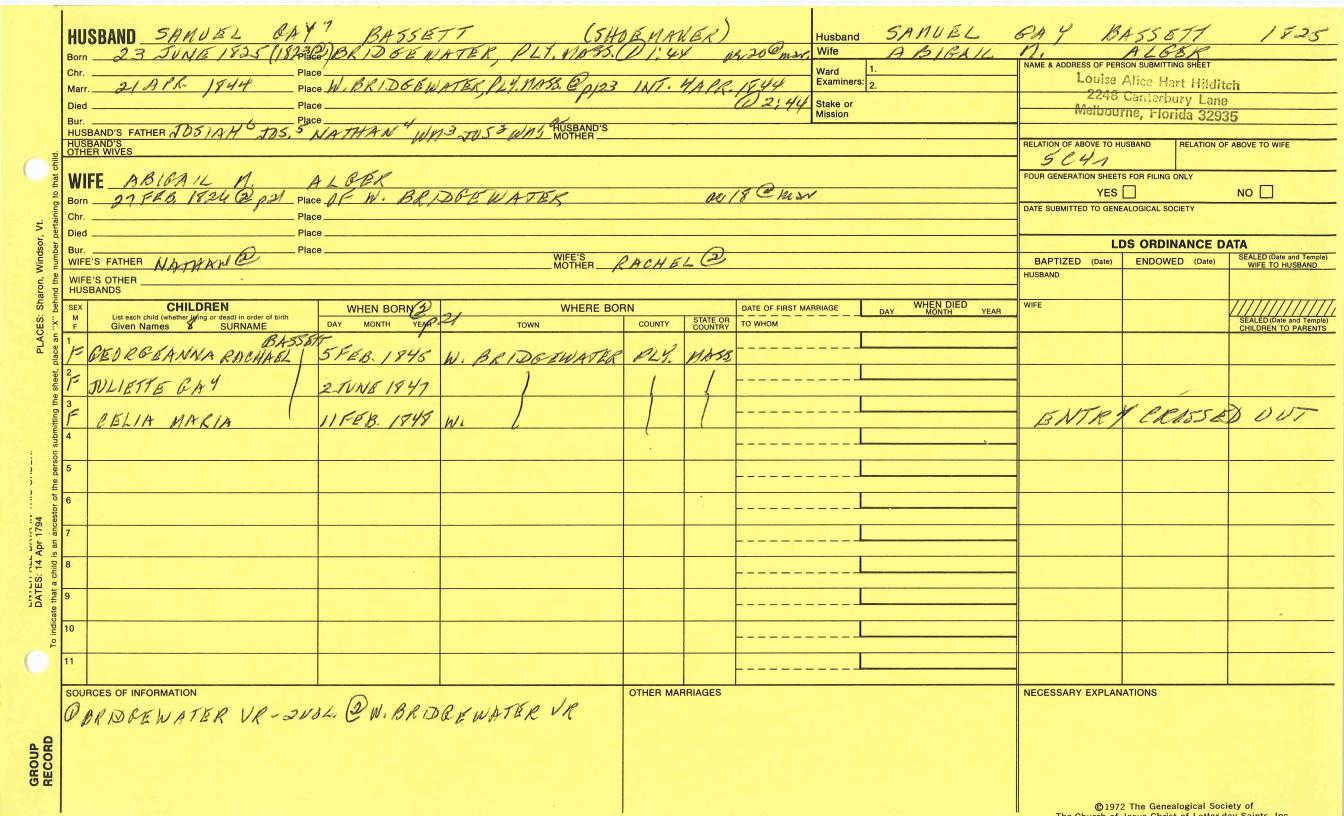 HUSBAND SAMUEL GAY 7 BASSETT (SHOEMAKER)
Born 23 JUNE 1825 (1823②) Place BRIDGEWATER, PLY. MASS. ① 1:44 ae 20 @ mar.
Chr. Place
Marr. 21 APR. 1844 Place W. BRIDGEWATER, PLY. MASS. ② p123 INT. 4 APR. 1844
Died Place ① 2:44
Bur. Place
HUSBAND'S FATHER JOSIAH 6 JOS. 5 NATHAN 4 WM 3 JOS 3 WM HUSBAND'S MOTHER
HUSBAND'S OTHER WIVES
WIFE ABIGAIL M. ALGER
Born 27 FEB. 1826 ② p21 Place OF W. BRIDGEWATER ae 18 @ mar
Chr. Place
Died Place
Bur. Place
WIFE'S FATHER NATHAN ② WIFE'S MOTHER RACHEL ②
WIFE'S OTHER HUSBANDS
Husband SAMUEL GAY BASSETT 1825
Wife ABIGAIL M. ALGER
Ward Examiners: 1.
2.
Stake or Mission
NAME & ADDRESS OF PERSON SUBMITTING SHEET
Louise Alice Hart Hilditch
2248 Canterbury Lane
Melbourne, Florida 32935
RELATION OF ABOVE TO HUSBAND RELATION OF ABOVE TO WIFE
5C4r
FOUR GENERATION SHEETS FOR FILING ONLY
YES NO
DATE SUBMITTED TO GENEALOGICAL SOCIETY
LDS ORDINANCE DATA
BAPTIZED (Date) ENDOWED (Date) SEALED (Date and Temple) WIFE TO HUSBAND
HUSBAND
WIFE
SEALED (Date and Temple) CHILDREN TO PARENTS
SEX M F CHILDREN WHEN BORN ② p21 WHERE BORN DATE OF FIRST MARRIAGE WHEN DIED
List each child (whether living or dead) in order of birth
Given Names 8 SURNAME DAY MONTH YEAR TOWN COUNTY STATE OR COUNTRY TO WHOM DAY MONTH YEAR
1 F GEORGEANNA RACHAEL BASSETT 5 FEB. 1845 W. BRIDGEWATER PLY. MASS
2 F JULIETTE GAY 2 JUNE 1847
3 F CELIA MARIA 11 FEB. 1848 W. ENTRY CROSSED OUT
4
5
6
7
8
9
10
11
SOURCES OF INFORMATION OTHER MARRIAGES NECESSARY EXPLANATIONS
① BRIDGEWATER VR-2VOL. ② W. BRIDGEWATER VR
©1972 The Genealogical Society of
The Church of Jesus Christ of Latter-day Saints, Inc.
PLACES: Sharon, Windsor, Vt.
DATES: 14 Apr 1794
To indicate that a child is an ancestor of the person submitting the sheet, place an "X" behind the number pertaining to that child.
GROUP RECORD